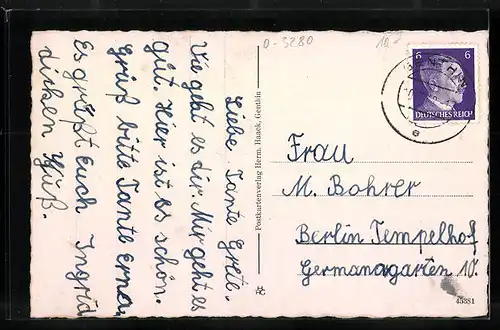 O-3280
10.-
6 6
DEUTSCHES REICH
GENTHIN
Liebe Tante Grete.
Wie geht es dir. Mir geht es
gut. Hier ist es schön.
Grüß bitte Tante Erna.
Es grüßt Euch Ingrid
dicken Kuß.
Postkartenverlag Herm. Haack, Genthin
Frau
M. Bohrer
Berlin Tempelhof
Germanagarten 10.
45381